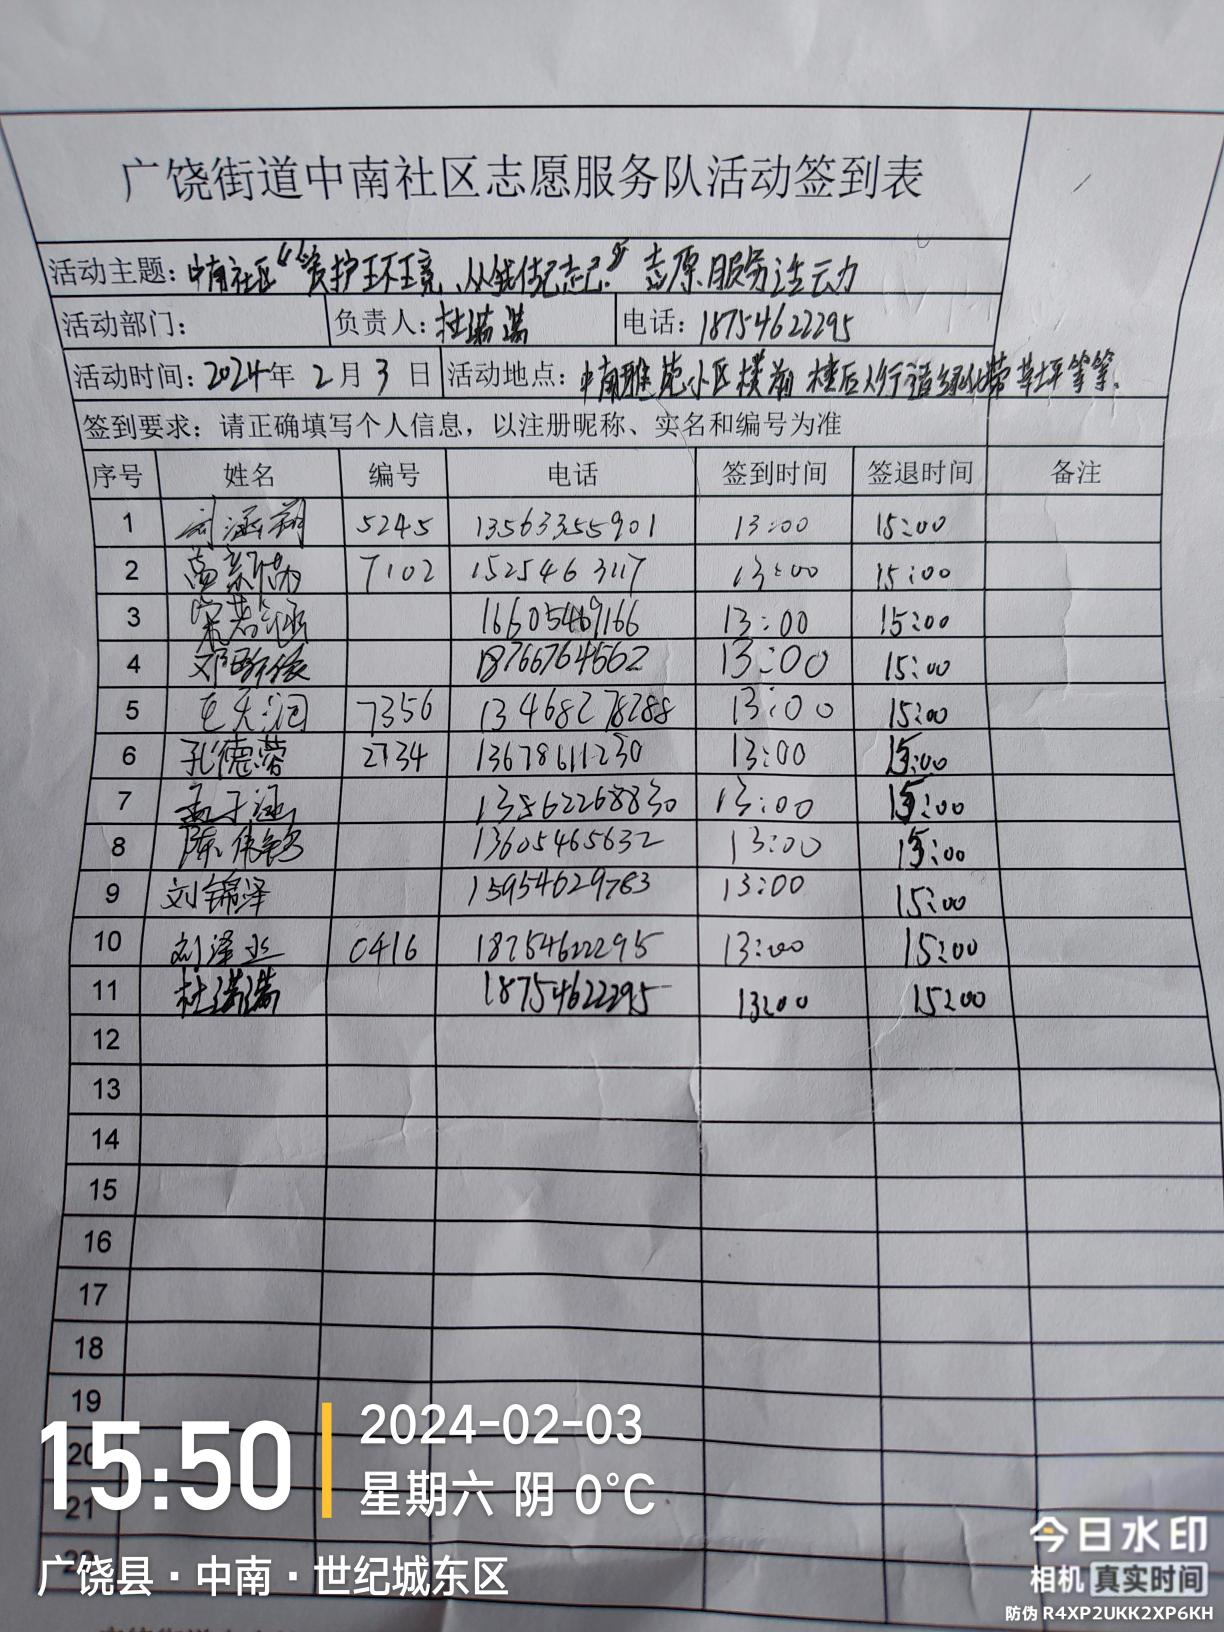 广饶街道中南社区志愿服务队活动签到表
活动主题：中南社区“爱护环境、从我做起.” 志愿服务活动
活动部门： 负责人：杜满满 电话：18754622295
活动时间：2024年 2月 3日 活动地点：中南雅苑小区楼前 楼后人行道绿化带草坪等等.
签到要求：请正确填写个人信息，以注册昵称、实名和编号为准
序号 姓名 编号 电话 签到时间 签退时间 备注
1 刘涵翔 5245 13563355901 13:00 15:00
2 7102 1525463117 13:00 15:00
3 宋若涵 16605469166 13:00 15:00
4 18766764662 13:00 15:00
5 7356 13468278288 13:00 15:00
6 孔德蓉 2734 13678611230 13:00 15:00
7 孟子涵 13562268830 13:00 15:00
8 陈伟铭 13605465632 13:00 15:00
9 刘锦泽 15954629763 13:00 15:00
10 刘泽 0416 18754622295 13:00 15:00
11 杜满满 18754622295 13:00 15:00
12
13
14
15
16
17
18
19
20
21
22
15:50
2024-02-03
星期六 阴 0°C
广饶县·中南·世纪城东区
今日水印
相机 真实时间
防伪 R4XP2UKK2XP6KH